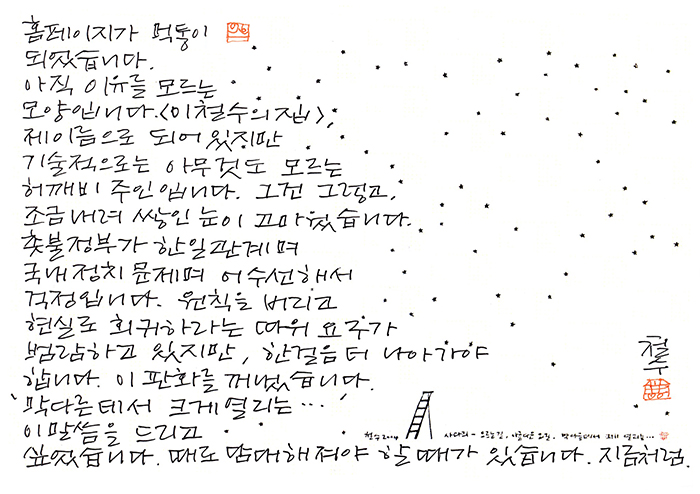 홈페이지가 먹통이
되었습니다.
아직 이유를 모르는
모양입니다. <이철수의 집>,
제이름으로 되어 있지만
기술적으로는 아무것도 모르는
허깨비 주인입니다. 그건 그렇고,
조금 내려 쌓인 눈이 고마웠습니다.
촛불정부가 한일관계며
국내정치 문제며 어수선해서
걱정입니다. 원칙을 버리고
현실로 회귀하라는 따위 요구가
범람하고 있지만, 한걸음 더 나아가야
합니다. 이 판화를 꺼냈습니다.
'막다른데서 크게 열리는…'
이말씀을 드리고
싶었습니다. 때로 담대해져야 할 때가 있습니다. 지금처럼.
철수
철수 2004 사다리 - 오르는 길,